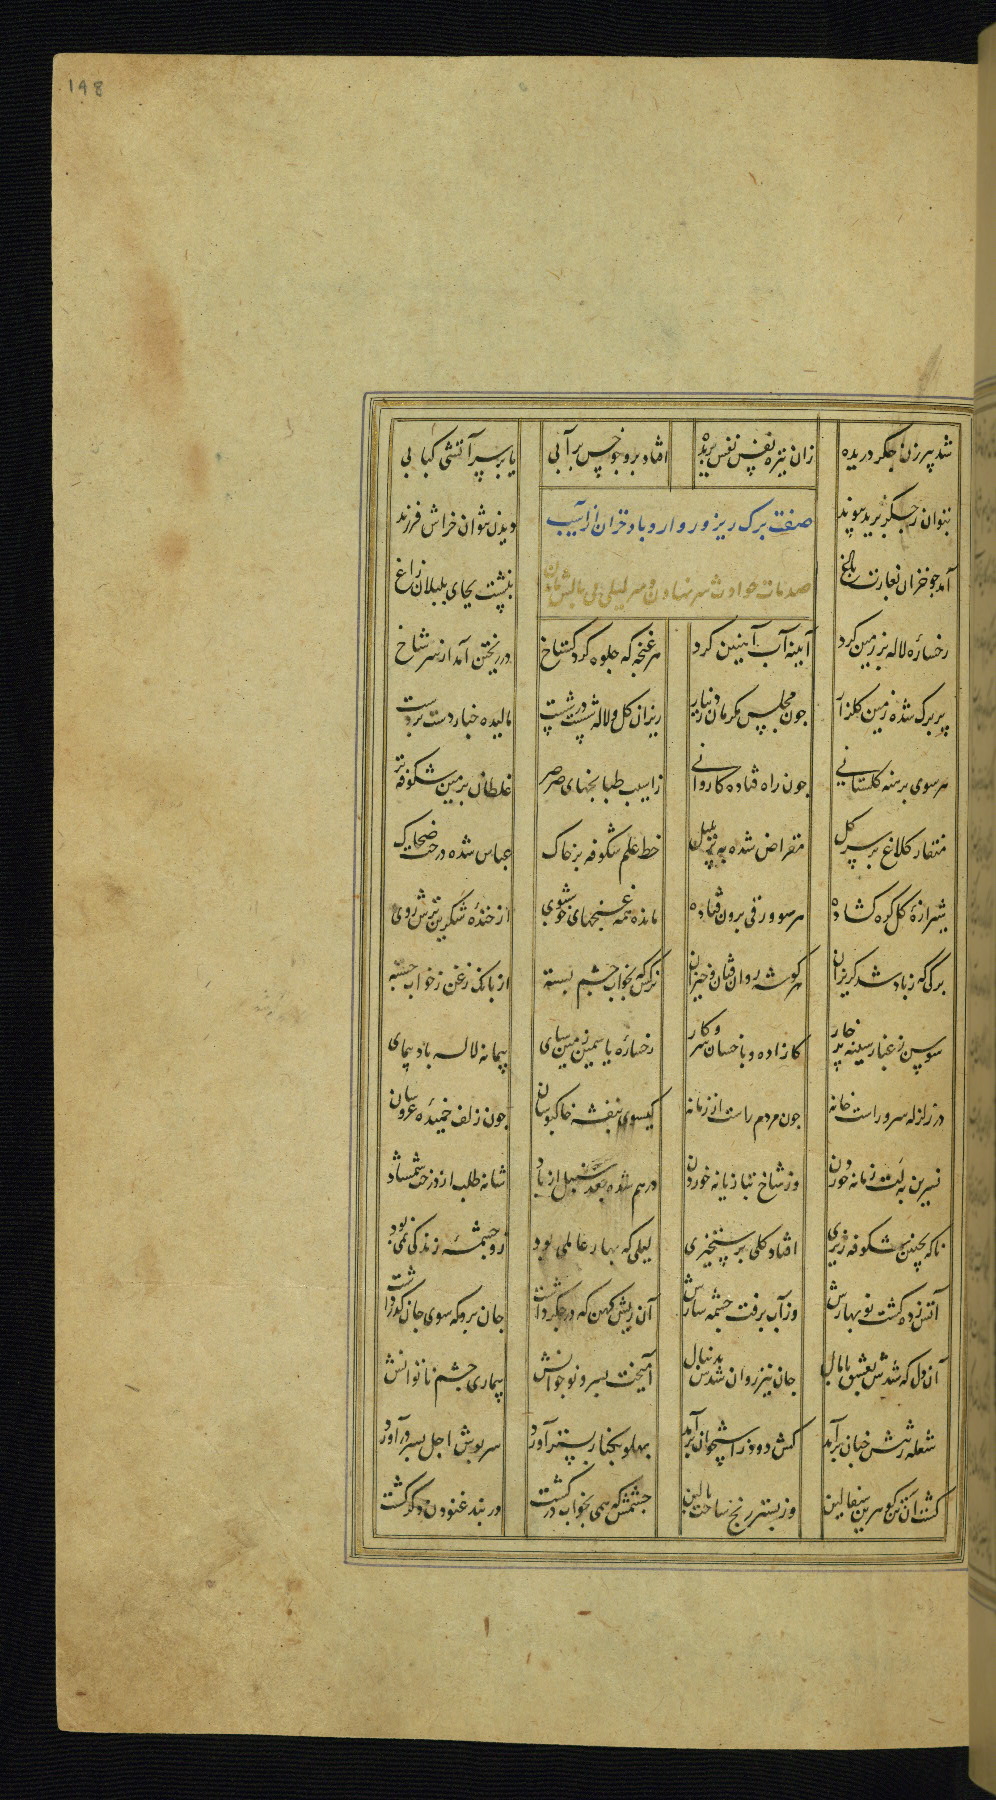 198
شد پیرزن جگر دریده زان نیزه نفس نفس بریده افتاد برو چو خس بر آبی یا بر سر آتشی کبابی
نتوان ز جگر برید پیوند دیدن نتوان خراش فرزند
صفت برگ ریز و باد خزان از آسیب
آمد چو خزان بغارت باغ بنشست بجای بلبلان زاغ
صدمات حوادث سر نهادن لیلی بالش
رخساره لاله بر زمین کرد آیینه آب آهنین کرد هر غنچه که جلوه کرد گستاخ در ریختن آمد از سر شاخ
پر برگ شده زمین گلزار چون مجلس مکرمان ز دینار ریزان گل و لاله پشت در پشت مالیده چنار دست بر دست
هر سوی برهنه گلستانی چون راه فتاده کاروانی ز آسیب طبانجهای صرصر غلطان بزمین شکوفه تر
منقار کلاغ بر سر گل مقراض شده به بلبل خط علم شکوفه بر خاک عباس شده درخت ضحاک
شیرازه گل گره گشاده هر سو ورقی برون فتاده مانده همه غنچهای خوشبوی از خنده شکرین ترش روی
برگی که ز باد شد گریزان هر گوشه روان فتان و خیزان نرگس که بخواب چشم بسته از بانگ زغن ز خواب جسته
سوسن ز غبار سینه پر خار کازاده و با خسان سر و کار رخساره یاسمین زمین سای پیمانه لاله باد پیمای
در زلزله سرو راست خانه چون مردم راست از زمانه گیسوی بنفشه خاکبوسان چون زلف خمیده عروسان
نسرین به لت زمانه خوردن وز شاخ تبازیانه خوردن در هم شده جعد سنبل از باد شانه طلب از درخت شمشاد
ناگه بچنین شکوفه ریزی افتاد گلی برستخیزی لیلی که بهار عالمی بود زو چشمه زندگی نمی بود
آتش زده گشت نو بهارش وز آب برفت چشمه سارش آن ریش کهن که در جگر داشت جان برد که سوی جان گذر داشت
آن دل که شدش بعشق پامال جان نیز روان شدش بدنبال آمیخت بسرو نوجوانش بیماری چشم ناتوانش
شعله ز تنش چنان برآمد کش دود ز استخوان برآمد پهلو بکنار بستر آورد سر پوش اجل بسر در آورد
گشت آن تن گوهرین سفالین وز بستر رنج ساخت بالین چشمش که همی بخواب در گشت در بند غنودن دگر گشت